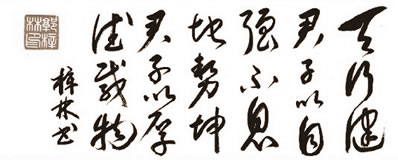 天行健
君子以自
强不息
地势坤
君子以厚
德载物
梓林书